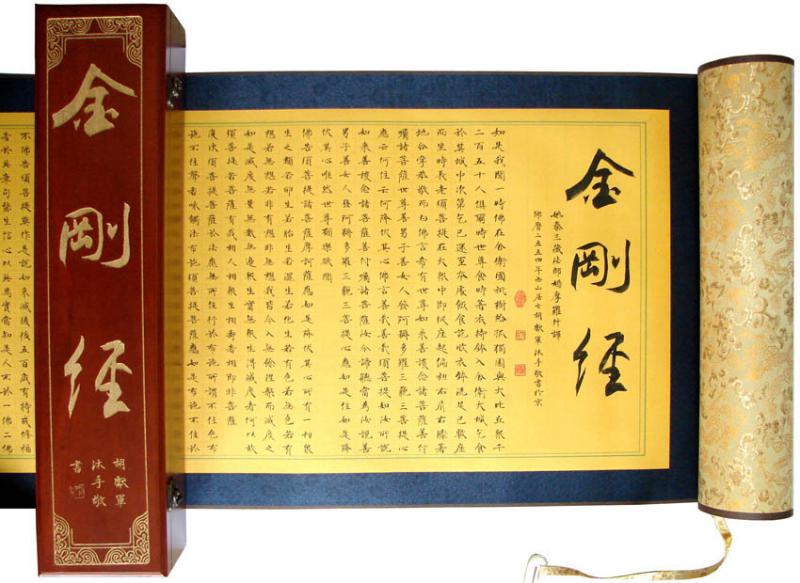 金剛经
姚秦三藏法師鳩摩羅什譯
佛曆二五五四年西山居士胡獻軍沐手敬書於京
如是我聞一時佛在舍衛國祇樹給孤獨園與大比丘衆千
二百五十人俱爾時世尊食時著衣持鉢入舍衛大城乞食
於其城中次第乞已還至本處飯食訖收衣鉢洗足已敷座
而坐時長老須菩提在大衆中即從座起偏袒右肩右膝著
地合掌恭敬而白佛言希有世尊如來善護念諸菩薩善付
囑諸菩薩世尊善男子善女人發阿耨多羅三藐三菩提心
應云何住云何降伏其心佛言善哉善哉須菩提如汝所説
如來善護念諸菩薩善付囑諸菩薩汝今諦聽當為汝説善
男子善女人發阿耨多羅三藐三菩提心應如是住如是降
伏其心唯然世尊願樂欲聞
佛告須菩提諸菩薩摩訶薩應如是降伏其心所有一切衆
生之類若卵生若胎生若濕生若化生若有色若無色若有
想若無想若非有想非無想我皆令入無餘涅槃而滅度之
如是滅度無量無數無邊衆生實無衆生得滅度者何以故
須菩提若菩薩有我相人相衆生相壽者相即非菩薩
復次須菩提菩薩於法應無所住行於布施所謂不住色布
施不住聲香味觸法布施須菩提菩薩應如是布施不住於
金剛经
胡獻軍
沐手敬
書
不佛告須菩提莫作是説如來滅後後五百歲有持戒修福
者於此章句能生信心以此為實當知是人不於一佛二佛